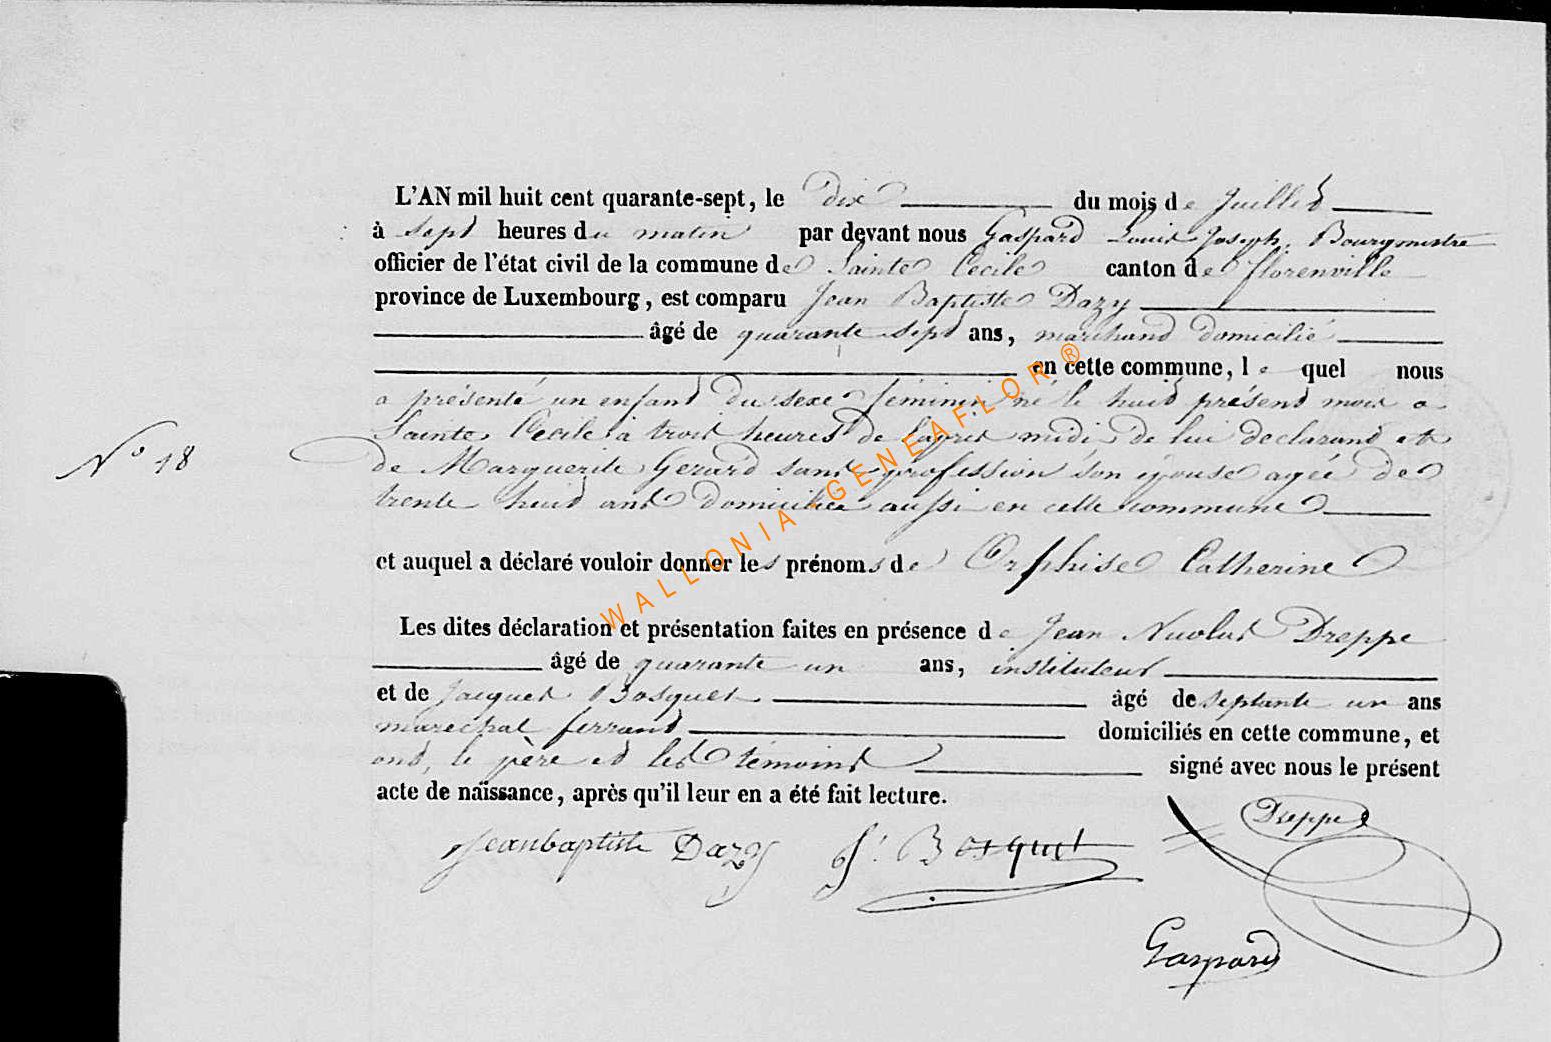 L'AN mil huit cent quarante-sept, le dix du mois de Juillet
à sept heures du matin par devant nous Gaspard Louis Joseph, Bourgmestre
officier de l'état civil de la commune de Sainte Cecile canton de florenville
province de Luxembourg, est comparu Jean Baptiste Dazy
âgé de quarante sept ans, marchand domicilié
en cette commune, le quel nous
a présenté un enfant du sexe féminin né le huit présent mois a
Sainte Cecile à trois heures de l'apres midi, de lui declarant et
N° 18
de Marguerite Gerard sans profession son epouse agée de
trente huit ans domiciliée aussi en cette commune
et auquel a déclaré vouloir donner les prénoms de Orphise Catherine
Les dites déclaration et présentation faites en présence de Jean Nicolas Dreppe
âgé de quarante un ans, instituteur
et de Jacques Bosquet âgé de septante un ans
marechal ferrant domiciliés en cette commune, et
ont, le père et les témoins signé avec nous le présent
acte de naissance, après qu'il leur en a été fait lecture.
Jeanbaptiste Dazy J. Bosquet Dreppe
Gaspard
WALLONIA - GENEAFLOR ®